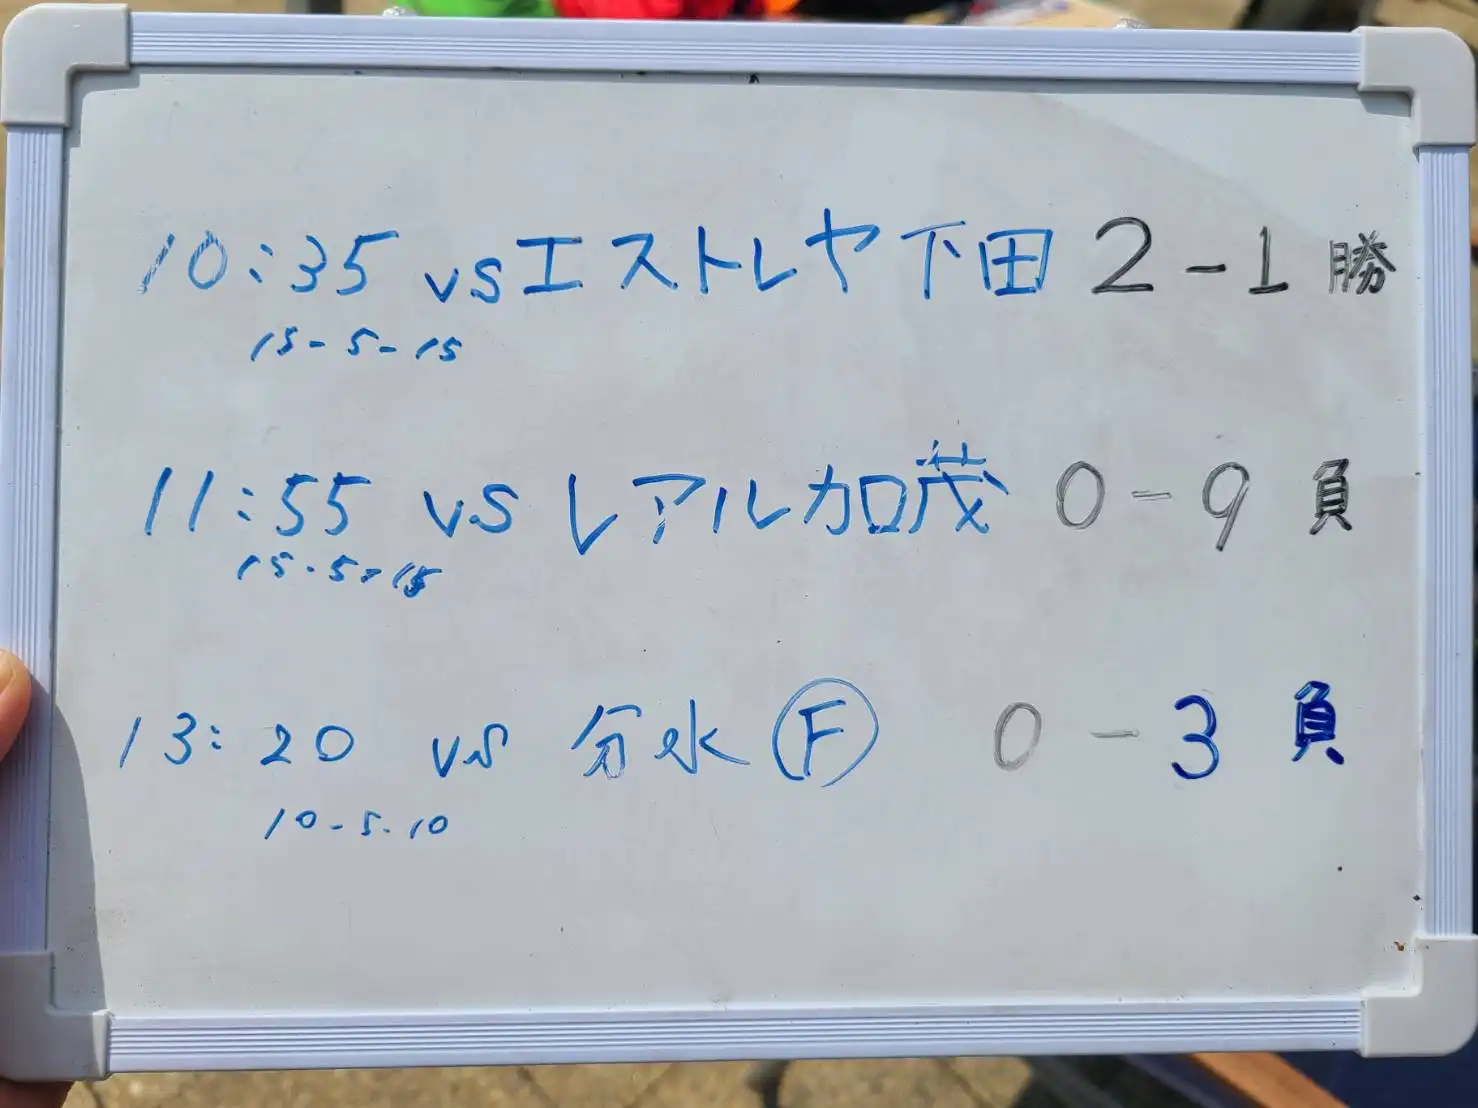 10:35 vsエストレヤ下田 2-1 勝
15-5-15
11:55 vs レアル加茂 0-9 負
15-5-15
13:20 vs 分水 Ⓕ 0-3 負
10-5-10